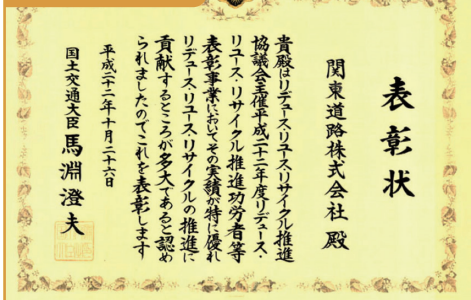 表彰状
関東道路株式会社 殿
貴殿はリデュース・リユース・リサイクル推進
協議会主催平成二十二年度リデュース・
リユース・リサイクル推進功労者等
表彰事業においてその実績が特に優れ
リデュース・リユース・リサイクルの推進に
貢献するところが多大であると認め
られましたのでこれを表彰します
平成二十二年十月二十六日
国土交通大臣 馬淵澄夫